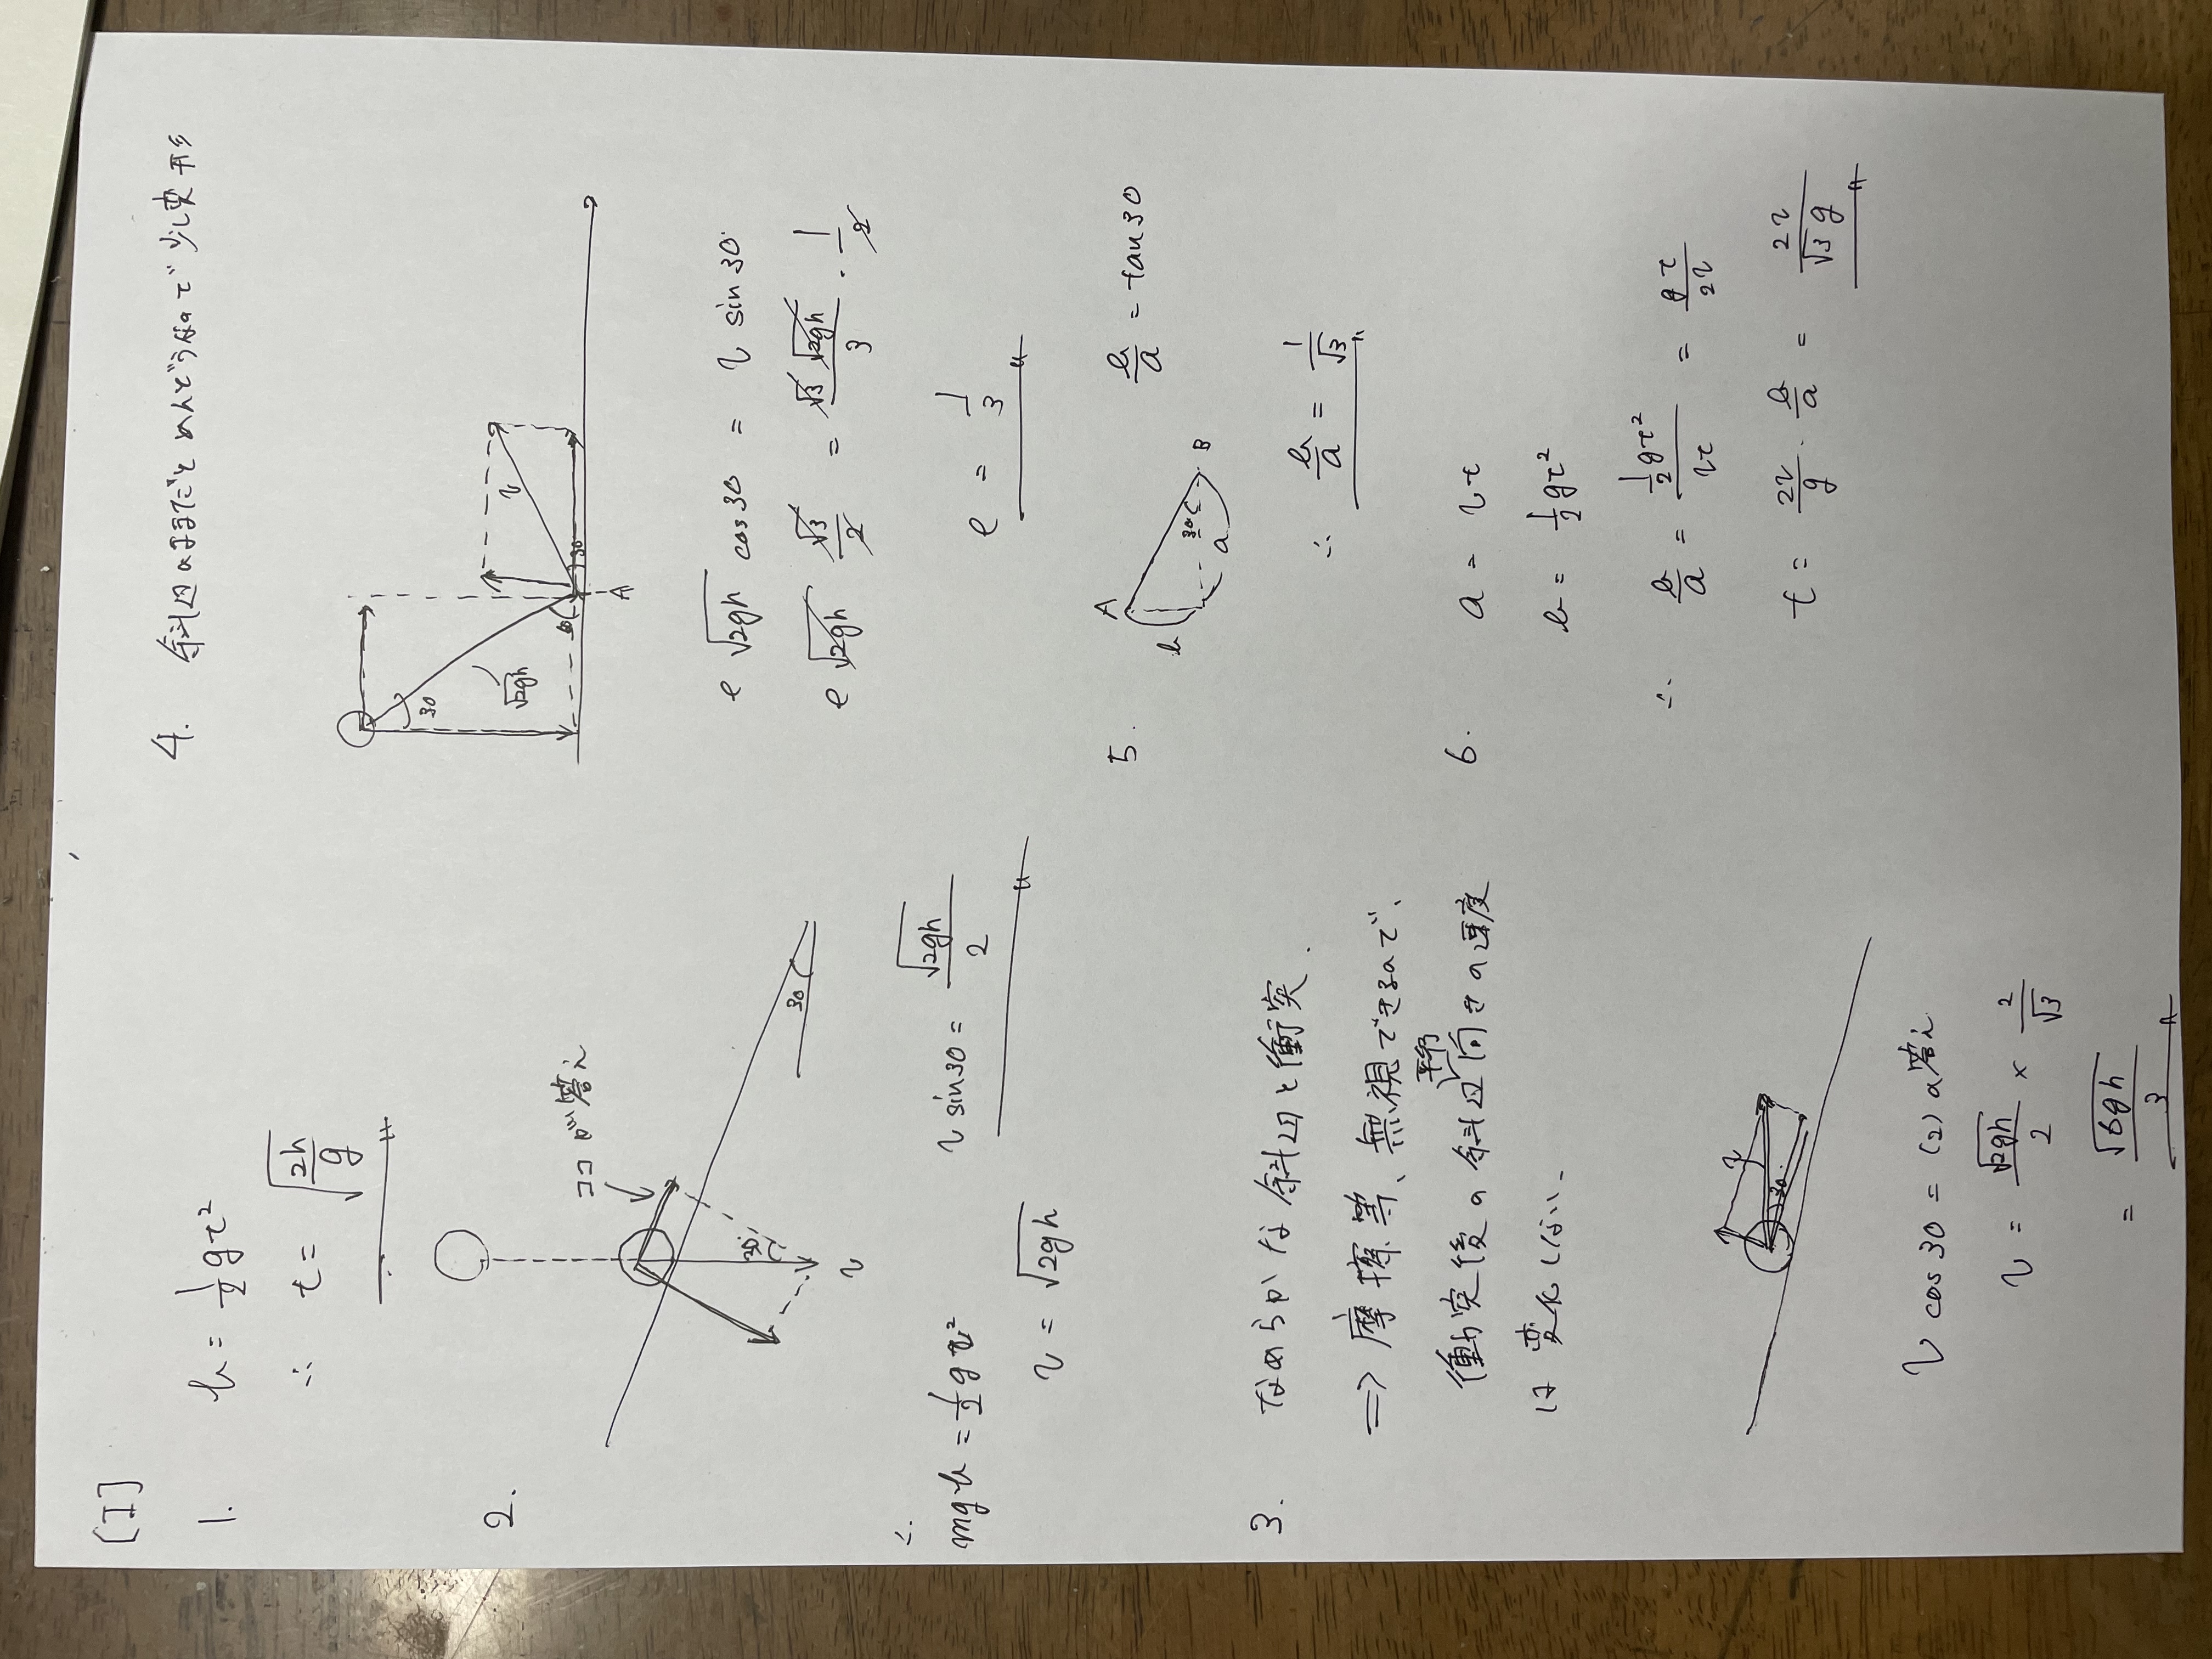 [I]
1.
h = 1/2 gt²
∴ t = √(2h/g)
2.
ココが答え
30
30
v
∴
mgh = 1/2 gv²
v sin30 = √2gh/2
v = √2gh
3. なめらかな斜面と衝突.
⇒ 摩擦等、無視できるので、
衝突後の斜面平行向きの速度
は変化しない、
v
30
v cos30 = (2)の答え
v = √2gh/2 × 2/√3
= √6gh/3
4. 斜面のままだとめんどうなので少し変形
30
√2gh
60
v
30
A
e √2gh cos30 = v sin30
e √2gh √3/2 = √3 √2gh/3 · 1/2
e = 1/3
5.
A
h
30
a
B
h/a = tan30
∴ h/a = 1/√3
6. a = vt
h = 1/2 gt²
∴ h/a = 1/2 gt²/vt = gt/2v
t = 2v/g · h/a = 2v/√3g